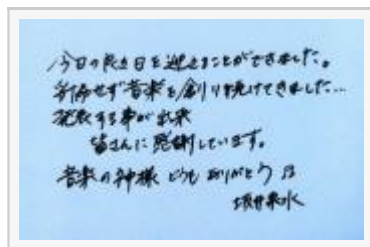 今日の良き日を迎えることができました。
音楽を創り続けてきました…
発表する事が出来
皆さんに感謝しています。
音楽の神様 どうもありがとう
坂井泉水